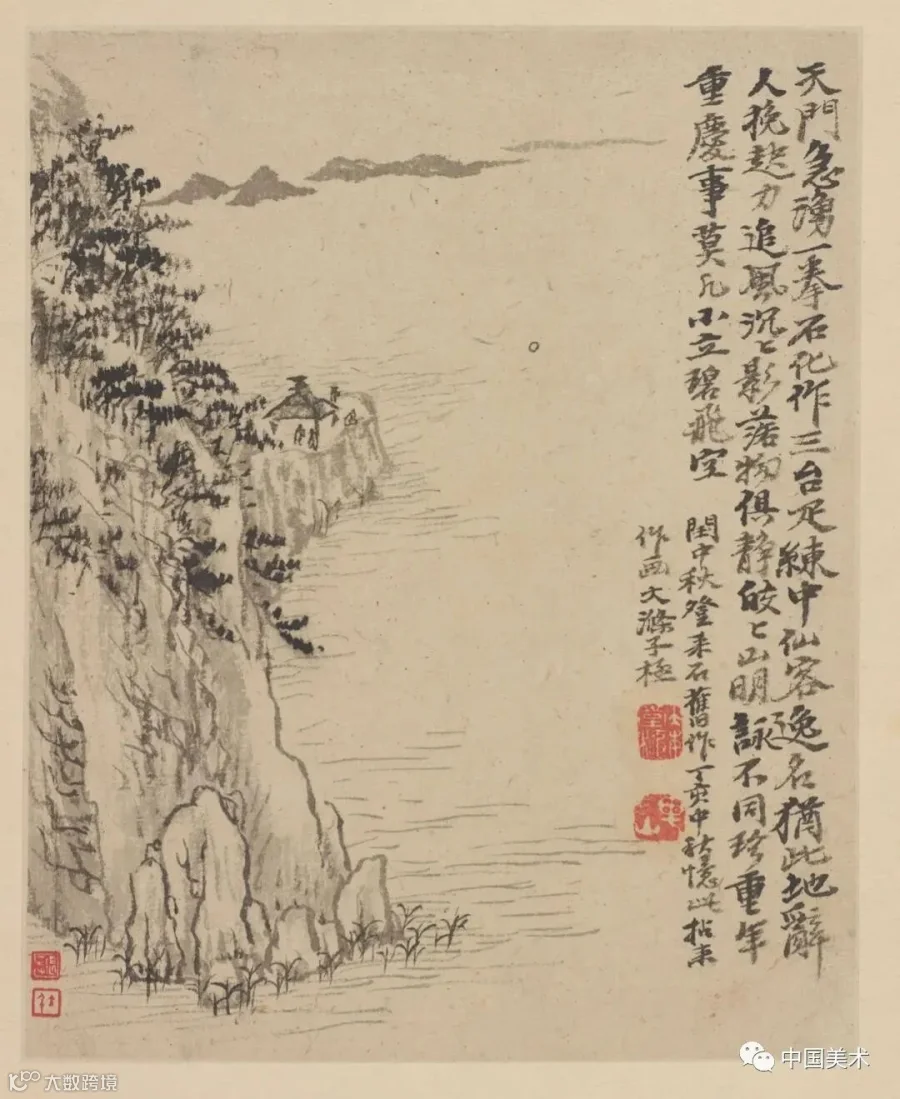 天門急湧一拳石化作三台足練中仙客逸名猶此地辭
人挽起力追風沉〻影落物俱静皎〻山明詠不同珍重年
重慶事莫凡小立碧飛空
閏中秋登采石舊作丁亥中秋憶此拈来
作画大滌子極
中国美术
大数跨境